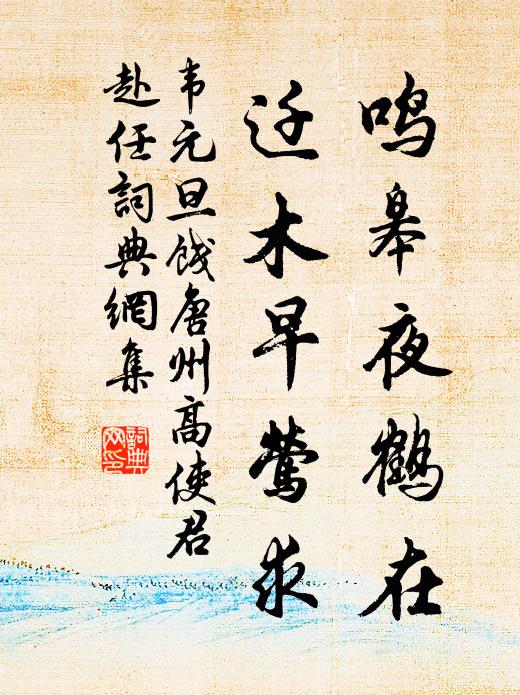 鸣皋夜鹤在
迁木早莺求
韦元旦饯唐州高使君
赴任詞典網集
詞典网印